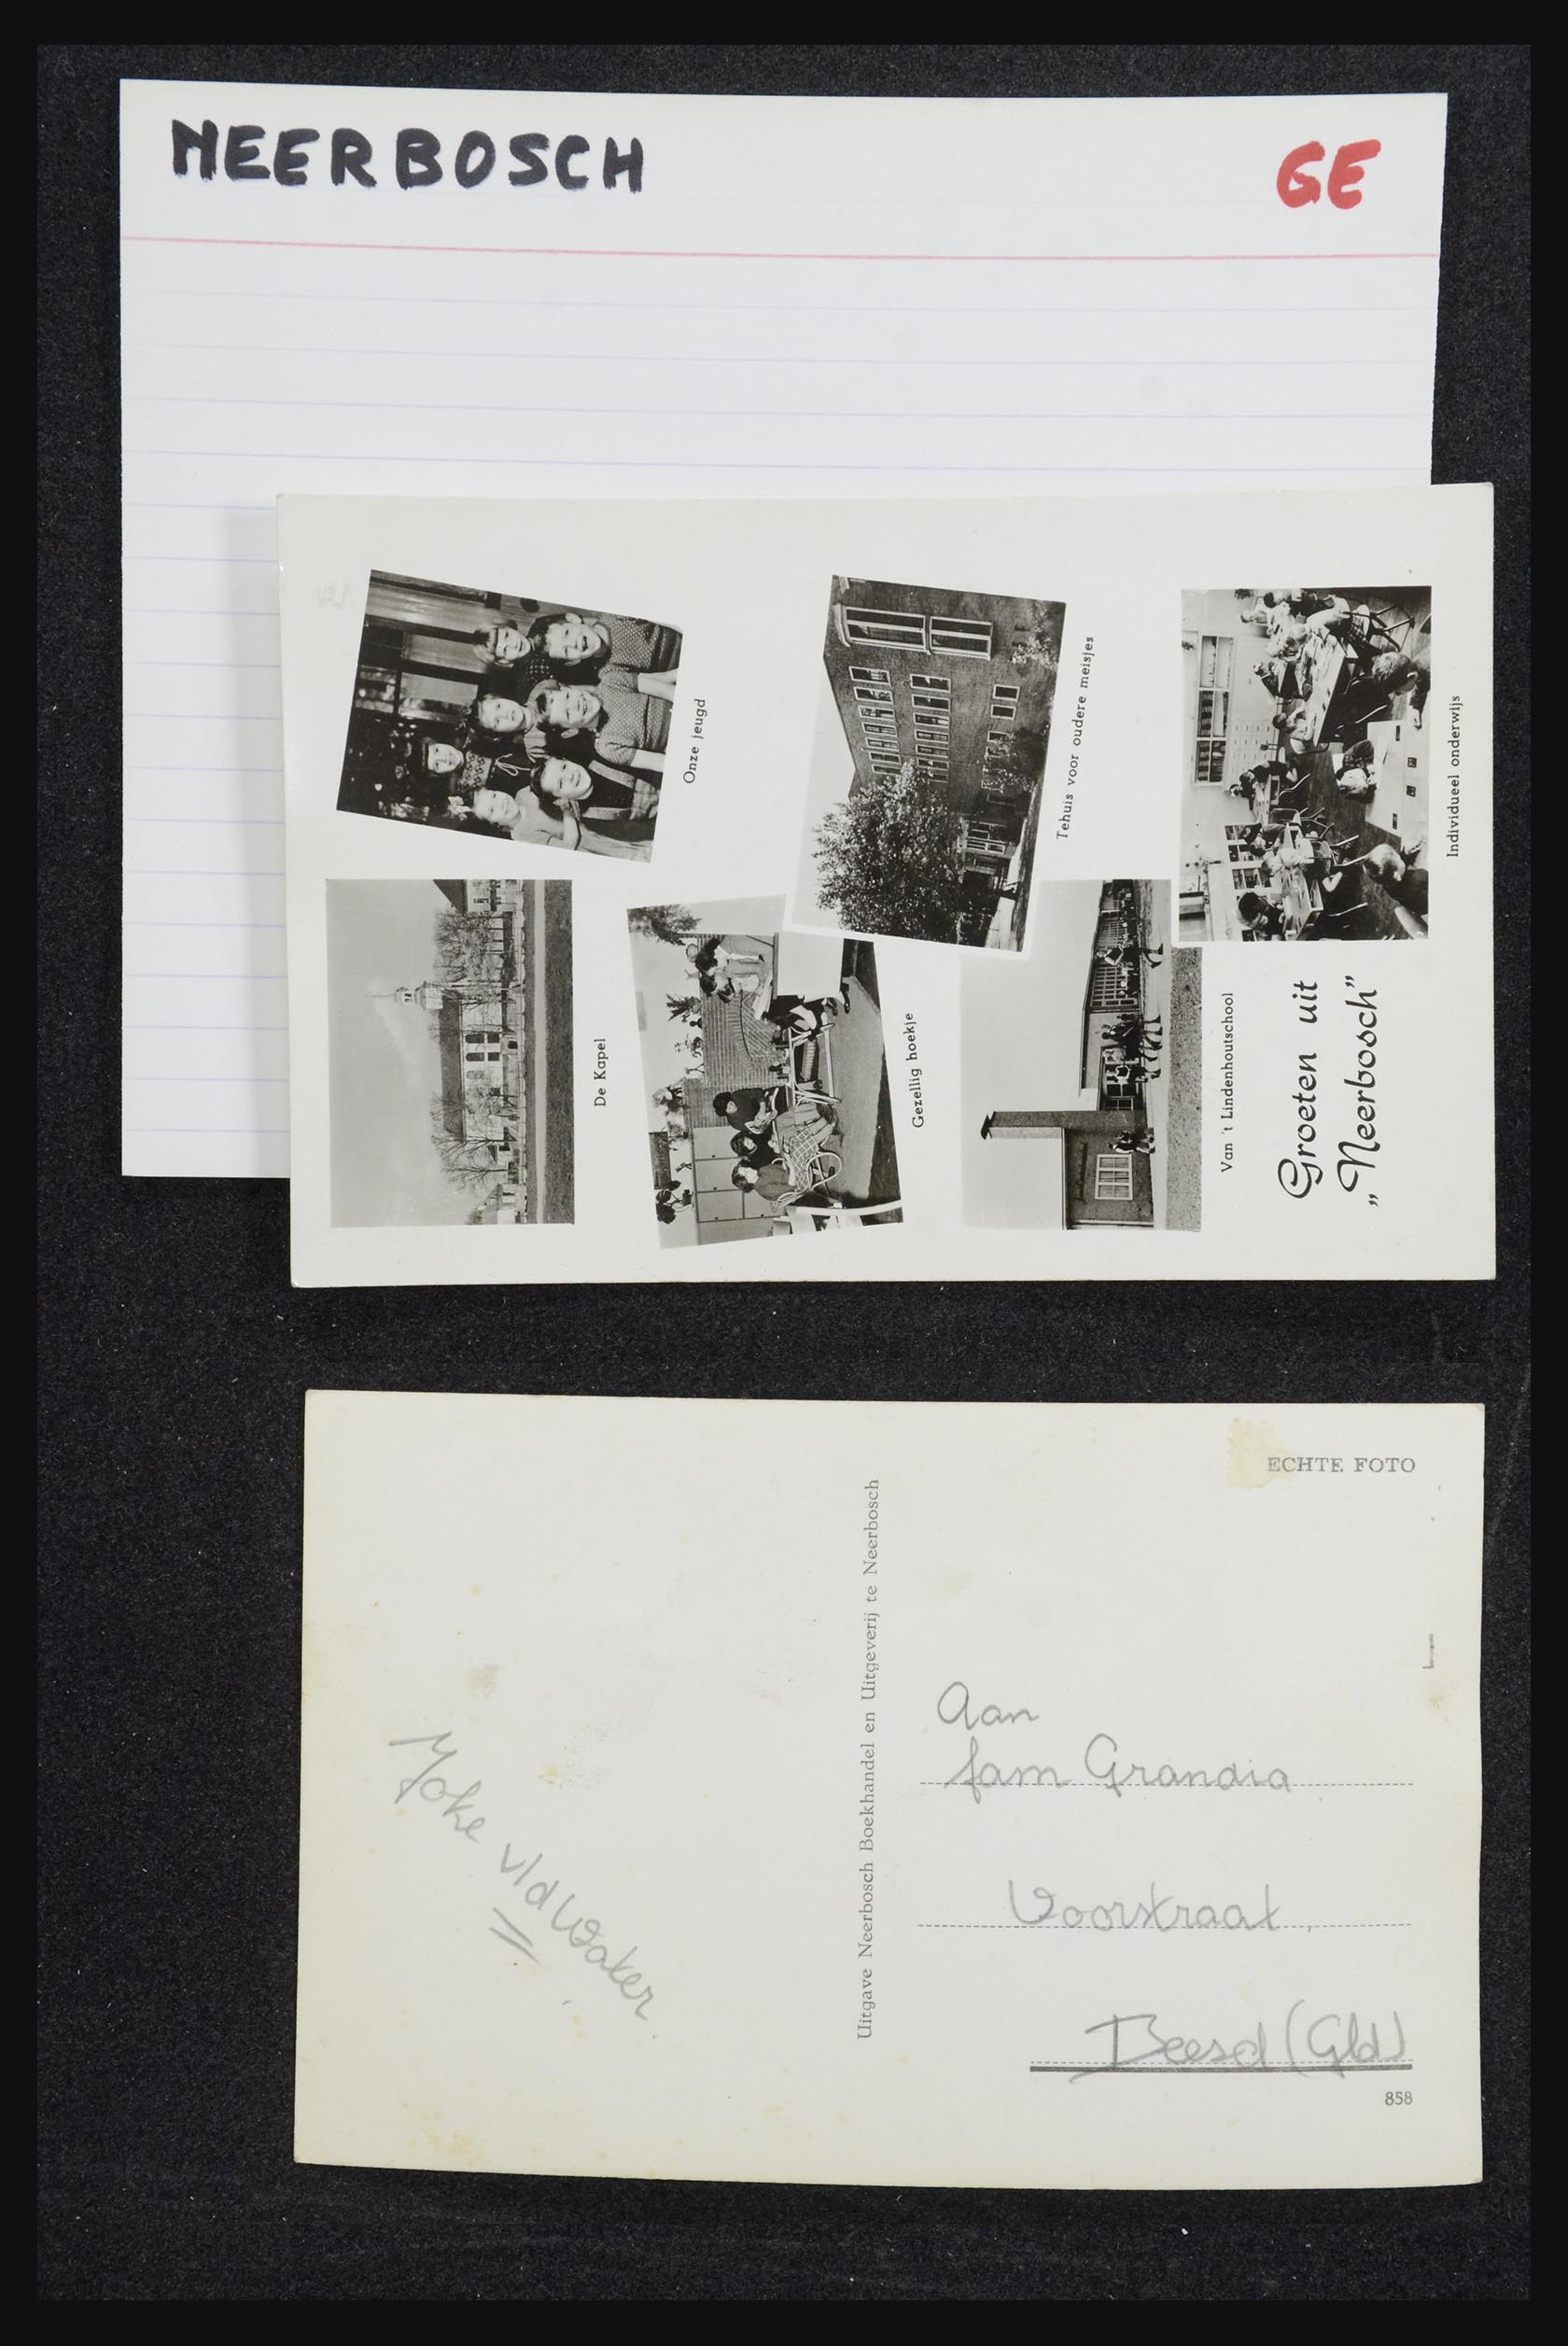 NEERBOSCH
GE
Onze jeugd
Tehuis voor oudere meisjes
Individueel onderwijs
De Kapel
Gezellig hoekje
Van 't Lindenhoutschool
Groeten uit
„Neerbosch”
ECHTE FOTO
Uitgave Neerbosch Boekhandel en Uitgeverij te Neerbosch
Joke v/d Water.
Aan
fam Grandia
Voorstraat
Beesd (Gld)
858